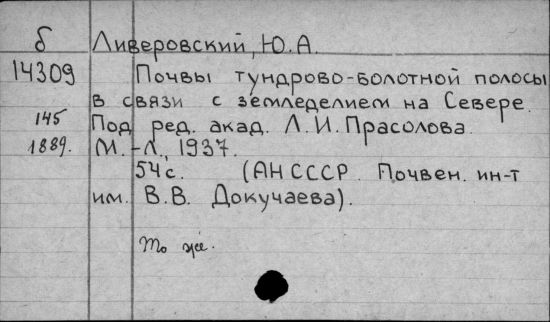 б Ливеровский, Ю.А.
14309 Почвы тундрово-болотной полосы
в связи с земледелием на Севере.
145 Под ред. акад. Л.И. Прасолова.
1889. М.-Л., 1937.
54с. (АН СССР. Почвен. ин-т
им. В.В. Докучаева).
То же.